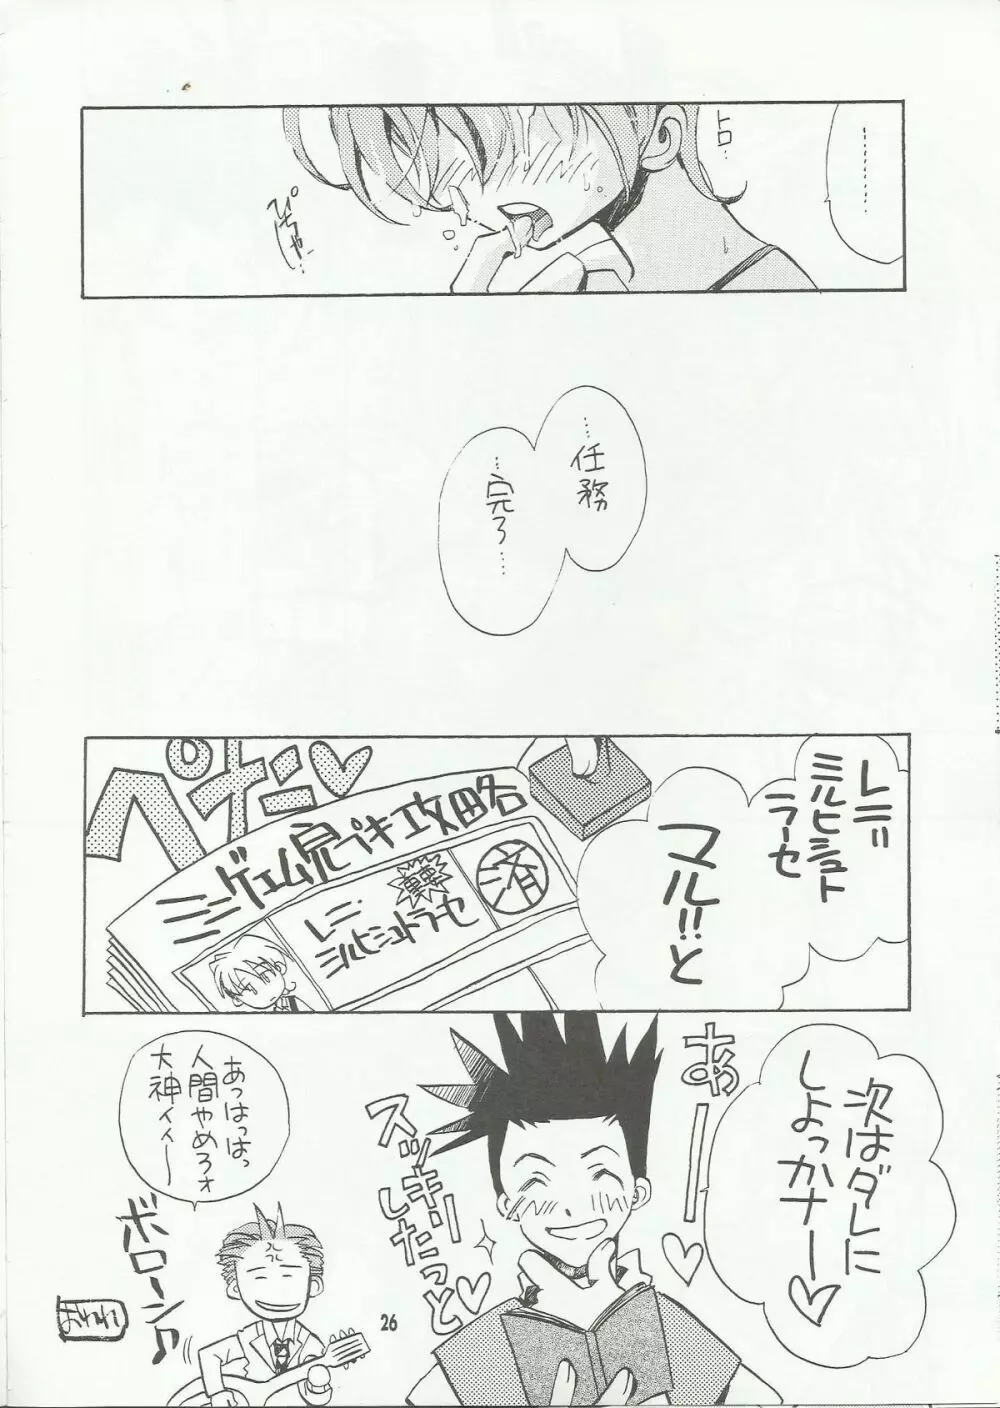 ………
トロ…
ぴちゃ…
…任務
…完了…
レニ・
ミルヒシュト
ラーセ
マル!!と
ペナーニ♡
ミニゲーム完ペキ攻略
レニ・
ミルヒシュトラーセ
済
次はダレに
しよっかナー♡
あーー♡
スッキリ
したっと
あっはっはっ
人間やめろォ
大神ィィー
ボローン♪
おわれ
26